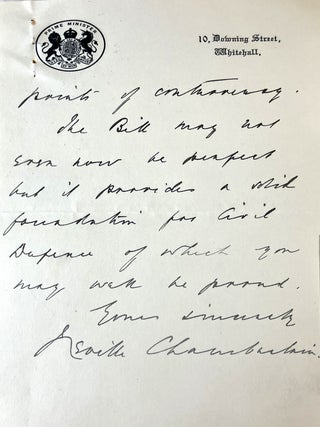 PRIME MINISTER
10, Downing Street,
Whitehall.
points of controversy.
The Bill may not
even now be perfect
but it provides a solid
foundation for Civil
Defence of which you
may well be proud.
Yours sincerely
Neville Chamberlain.